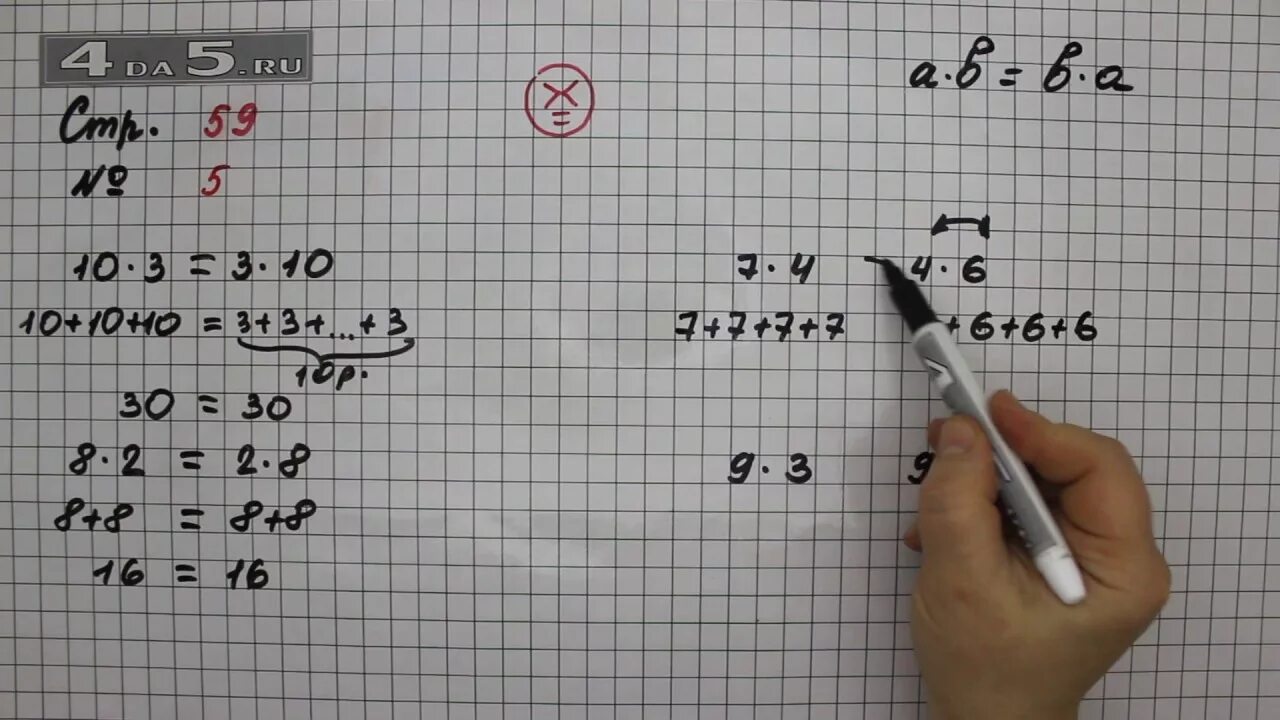 4DA5.RU
Стр. 59
№ 5
a·b = b·a
10·3 = 3·10
10+10+10 = 3+3+...+3
10р.
30 = 30
8·2 = 2·8
8+8 = 8+8
16 = 16
7·4 4·6
7+7+7+7 +6+6+6
9·3 9